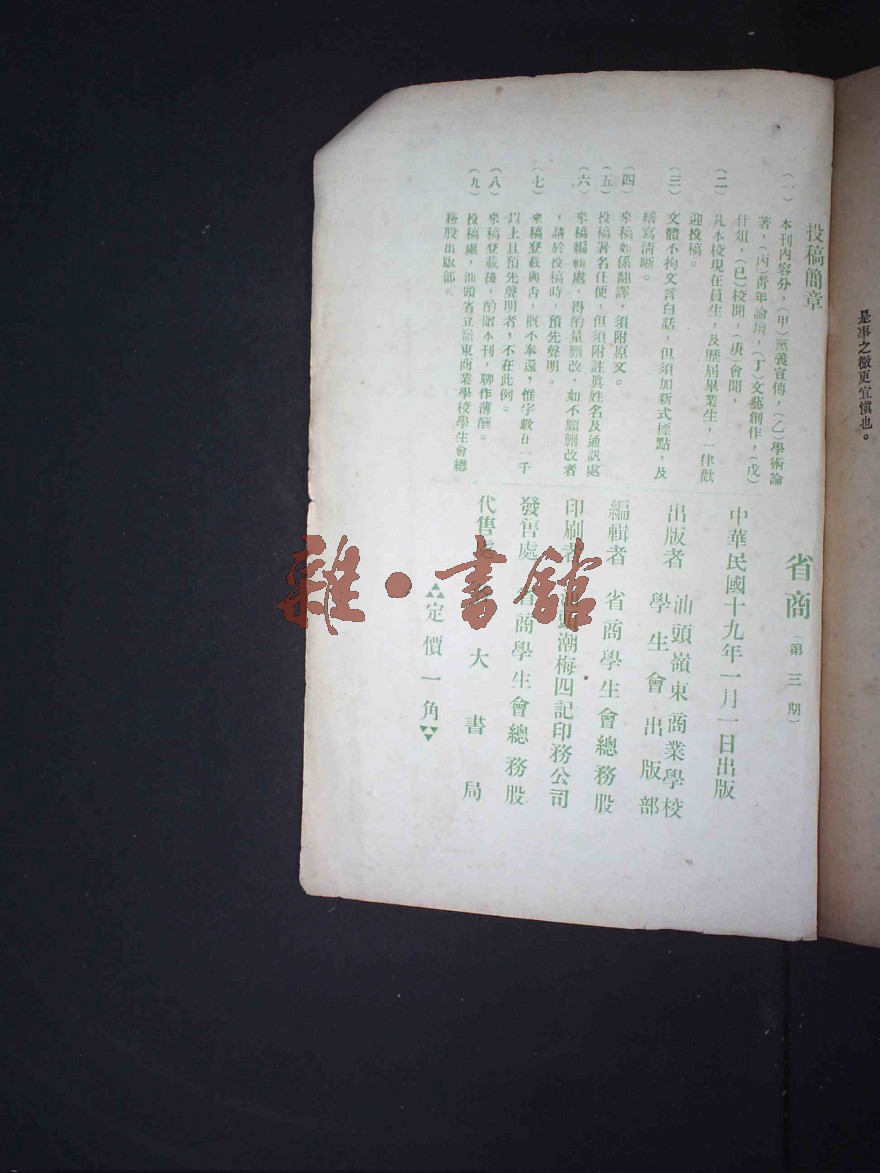 投稿簡章
(一) 本刊內容分，(甲)黨義宣傳，(乙)學術論
著，(丙)青年論壇，(丁)文藝創作，(戊)
什俎，(已)校聞，(庚)會聞，
(二) 凡本校現在員生，及歷屆畢業生，一律歡
迎投稿。
(三) 文體不拘文言白話，但須加新式標點，及
繕寫清晰。
(四) 來稿如係翻譯，須附原文。
(五) 投稿署名任便，但須附註眞姓名及通訊處
(六) 來稿編輯處，得酌量刪改，如不願刪改者
，請於投稿時，預先聲明。
(七) 來稿登載與否，概不奉還，惟字數在一千
以上且預先聲明者，不在此例。
(八) 來稿登載後，酌贈本刊，聊作薄酬。
(九) 投稿處，汕頭省立嶺東商業學校學生會總
務股出版部。
省商 (第三期)
中華民國十九年一月一日出版
出版者 汕頭嶺東商業學校
學生會出版部
編輯者 省商學生會總務股
印刷者 汕頭潮梅四記印務公司
發售處 省商學生會總務股
代售處 大書局
定價一角
是事之微更宜愼也。
雜·書館